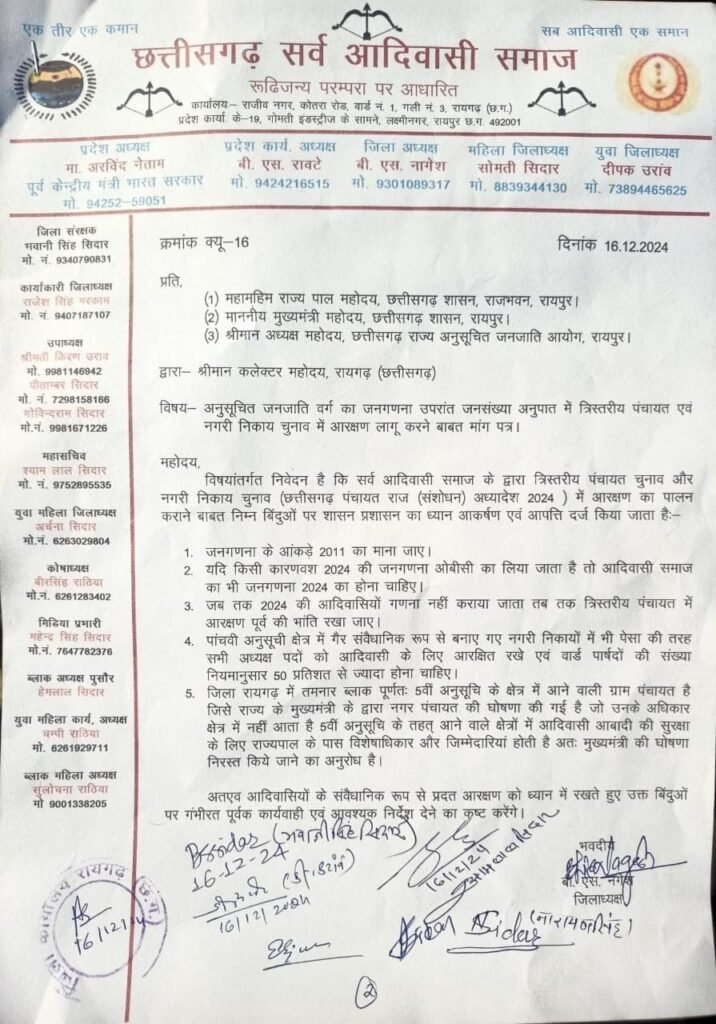 एक तीर एक कमान
सब आदिवासी एक समान
छत्तीसगढ़ सर्व आदिवासी समाज
रूढिजन्य परम्परा पर आधारित
कार्यालय– राजीव नगर, कोतरा रोड, वार्ड नं. 1, गली नं. 3, रायगढ़ (छ.ग.)
प्रदेश कार्या. के–19, गोमती इंडस्ट्रीज के सामने, लक्ष्मीनगर, रायपुर छ.ग. 492001
प्रदेश अध्यक्ष
मा. अरविंद नेताम
पूर्व केन्द्रीय मंत्री भारत सरकार
मो. 94252–59051
प्रदेश कार्य. अध्यक्ष
बी. एस. रावटे
मो. 9424216515
जिला अध्यक्ष
बी. एस. नागेश
मो. 9301089317
महिला जिलाध्यक्ष
सोमती सिदार
मो. 8839344130
युवा जिलाध्यक्ष
दीपक उरांव
मो. 73894465625
जिला संरक्षक
भवानी सिंह सिदार
मो. नं. 9340790831
कार्यकारी जिलाध्यक्ष
राजेश सिंह मरकाम
मो. नं. 9407187107
उपाध्यक्ष
श्रीमती किरण उराव
मो. 9981146942
पीताम्बर सिदार
मो. नं. 7298158166
गोविन्दराम सिदार
मो.नं. 9981671226
महासचिव
श्याम लाल सिदार
मो. नं. 9752895535
युवा महिला जिलाध्यक्ष
अर्चना सिदार
मो.नं. 6263029804
कोषाध्यक्ष
बीरसिंह राठिया
मो.नं. 6261283402
मिडिया प्रभारी
महेन्द्र सिंह सिदार
मो.नं. 7647782376
ब्लाक अध्यक्ष पुसौर
हेमलाल सिदार
युवा महिला कार्य. अध्यक्ष
चम्पी राठिया
मो. 6261929711
ब्लाक महिला अध्यक्ष
सुलोचना राठिया
मो 9001338205
क्रमांक क्यू–16
दिनांक 16.12.2024
प्रति,
(1) महामहिम राज्य पाल महोदय, छत्तीसगढ़ शासन, राजभवन, रायपुर।
(2) माननीय मुख्यमंत्री महोदय, छत्तीसगढ़ शासन, रायपुर।
(3) श्रीमान अध्यक्ष महोदय, छत्तीसगढ़ राज्य अनुसूचित जनजाति आयोग, रायपुर।
द्वारा– श्रीमान कलेक्टर महोदय, रायगढ़ (छत्तीसगढ़)
विषय– अनुसूचित जनजाति वर्ग का जनगणना उपरांत जनसंख्या अनुपात में त्रिस्तरीय पंचायत एवं
नगरी निकाय चुनाव में आरक्षण लागू करने बाबत मांग पत्र।
महोदय,
विषयांतर्गत निवेदन है कि सर्व आदिवासी समाज के द्वारा त्रिस्तरीय पंचायत चुनाव और
नगरी निकाय चुनाव (छत्तीसगढ़ पंचायत राज (संशोधन) अध्यादेश 2024 ) में आरक्षण का पालन
कराने बाबत निम्न बिंदुओं पर शासन प्रशासन का ध्यान आकर्षण एवं आपत्ति दर्ज किया जाता हैः–
1. जनगणना के आंकड़े 2011 का माना जाए।
2. यदि किसी कारणवश 2024 की जनगणना ओबीसी का लिया जाता है तो आदिवासी समाज
का भी जनगणना 2024 का होना चाहिए।
3. जब तक 2024 की आदिवासियों गणना नहीं कराया जाता तब तक त्रिस्तरीय पंचायत में
आरक्षण पूर्व की भांति रखा जाए।
4. पांचवी अनुसूची क्षेत्र में गैर संवैधानिक रूप से बनाए गए नगरी निकायों में भी पेसा की तरह
सभी अध्यक्ष पदों को आदिवासी के लिए आरक्षित रखे एवं वार्ड पार्षदों की संख्या
नियमानुसार 50 प्रतिशत से ज्यादा होना चाहिए।
5. जिला रायगढ़ में तमनार ब्लाक पूर्णतः 5वीं अनुसूचि के क्षेत्र में आने वाली ग्राम पंचायत है
जिसे राज्य के मुख्यमंत्री के द्वारा नगर पंचायत की घोषणा की गई है जो उनके अधिकार
क्षेत्र में नहीं आता है 5वीं अनुसूचि के तहत् आने वाले क्षेत्रों में आदिवासी आबादी की सुरक्षा
के लिए राज्यपाल के पास विशेषाधिकार और जिम्मेदारियां होती है अतः मुख्यमंत्री की घोषणा
निरस्त किये जाने का अनुरोध है।
अतएव आदिवासियों के संवैधानिक रूप से प्रदत आरक्षण को ध्यान में रखते हुए उक्त बिंदुओं
पर गंभीरत पूर्वक कार्यवाही एवं आवश्यक निर्देश देने का कष्ट करेंगे।
(भवानी सिंह सिदार)
16-12-24
16/12/2024
16/12/24
भवदीय
बी. एस. नागेश
जिलाध्यक्ष
Sidar (नारायण सिंह)
कार्यालय रायगढ़ (छ.ग.)
16/12/24
2